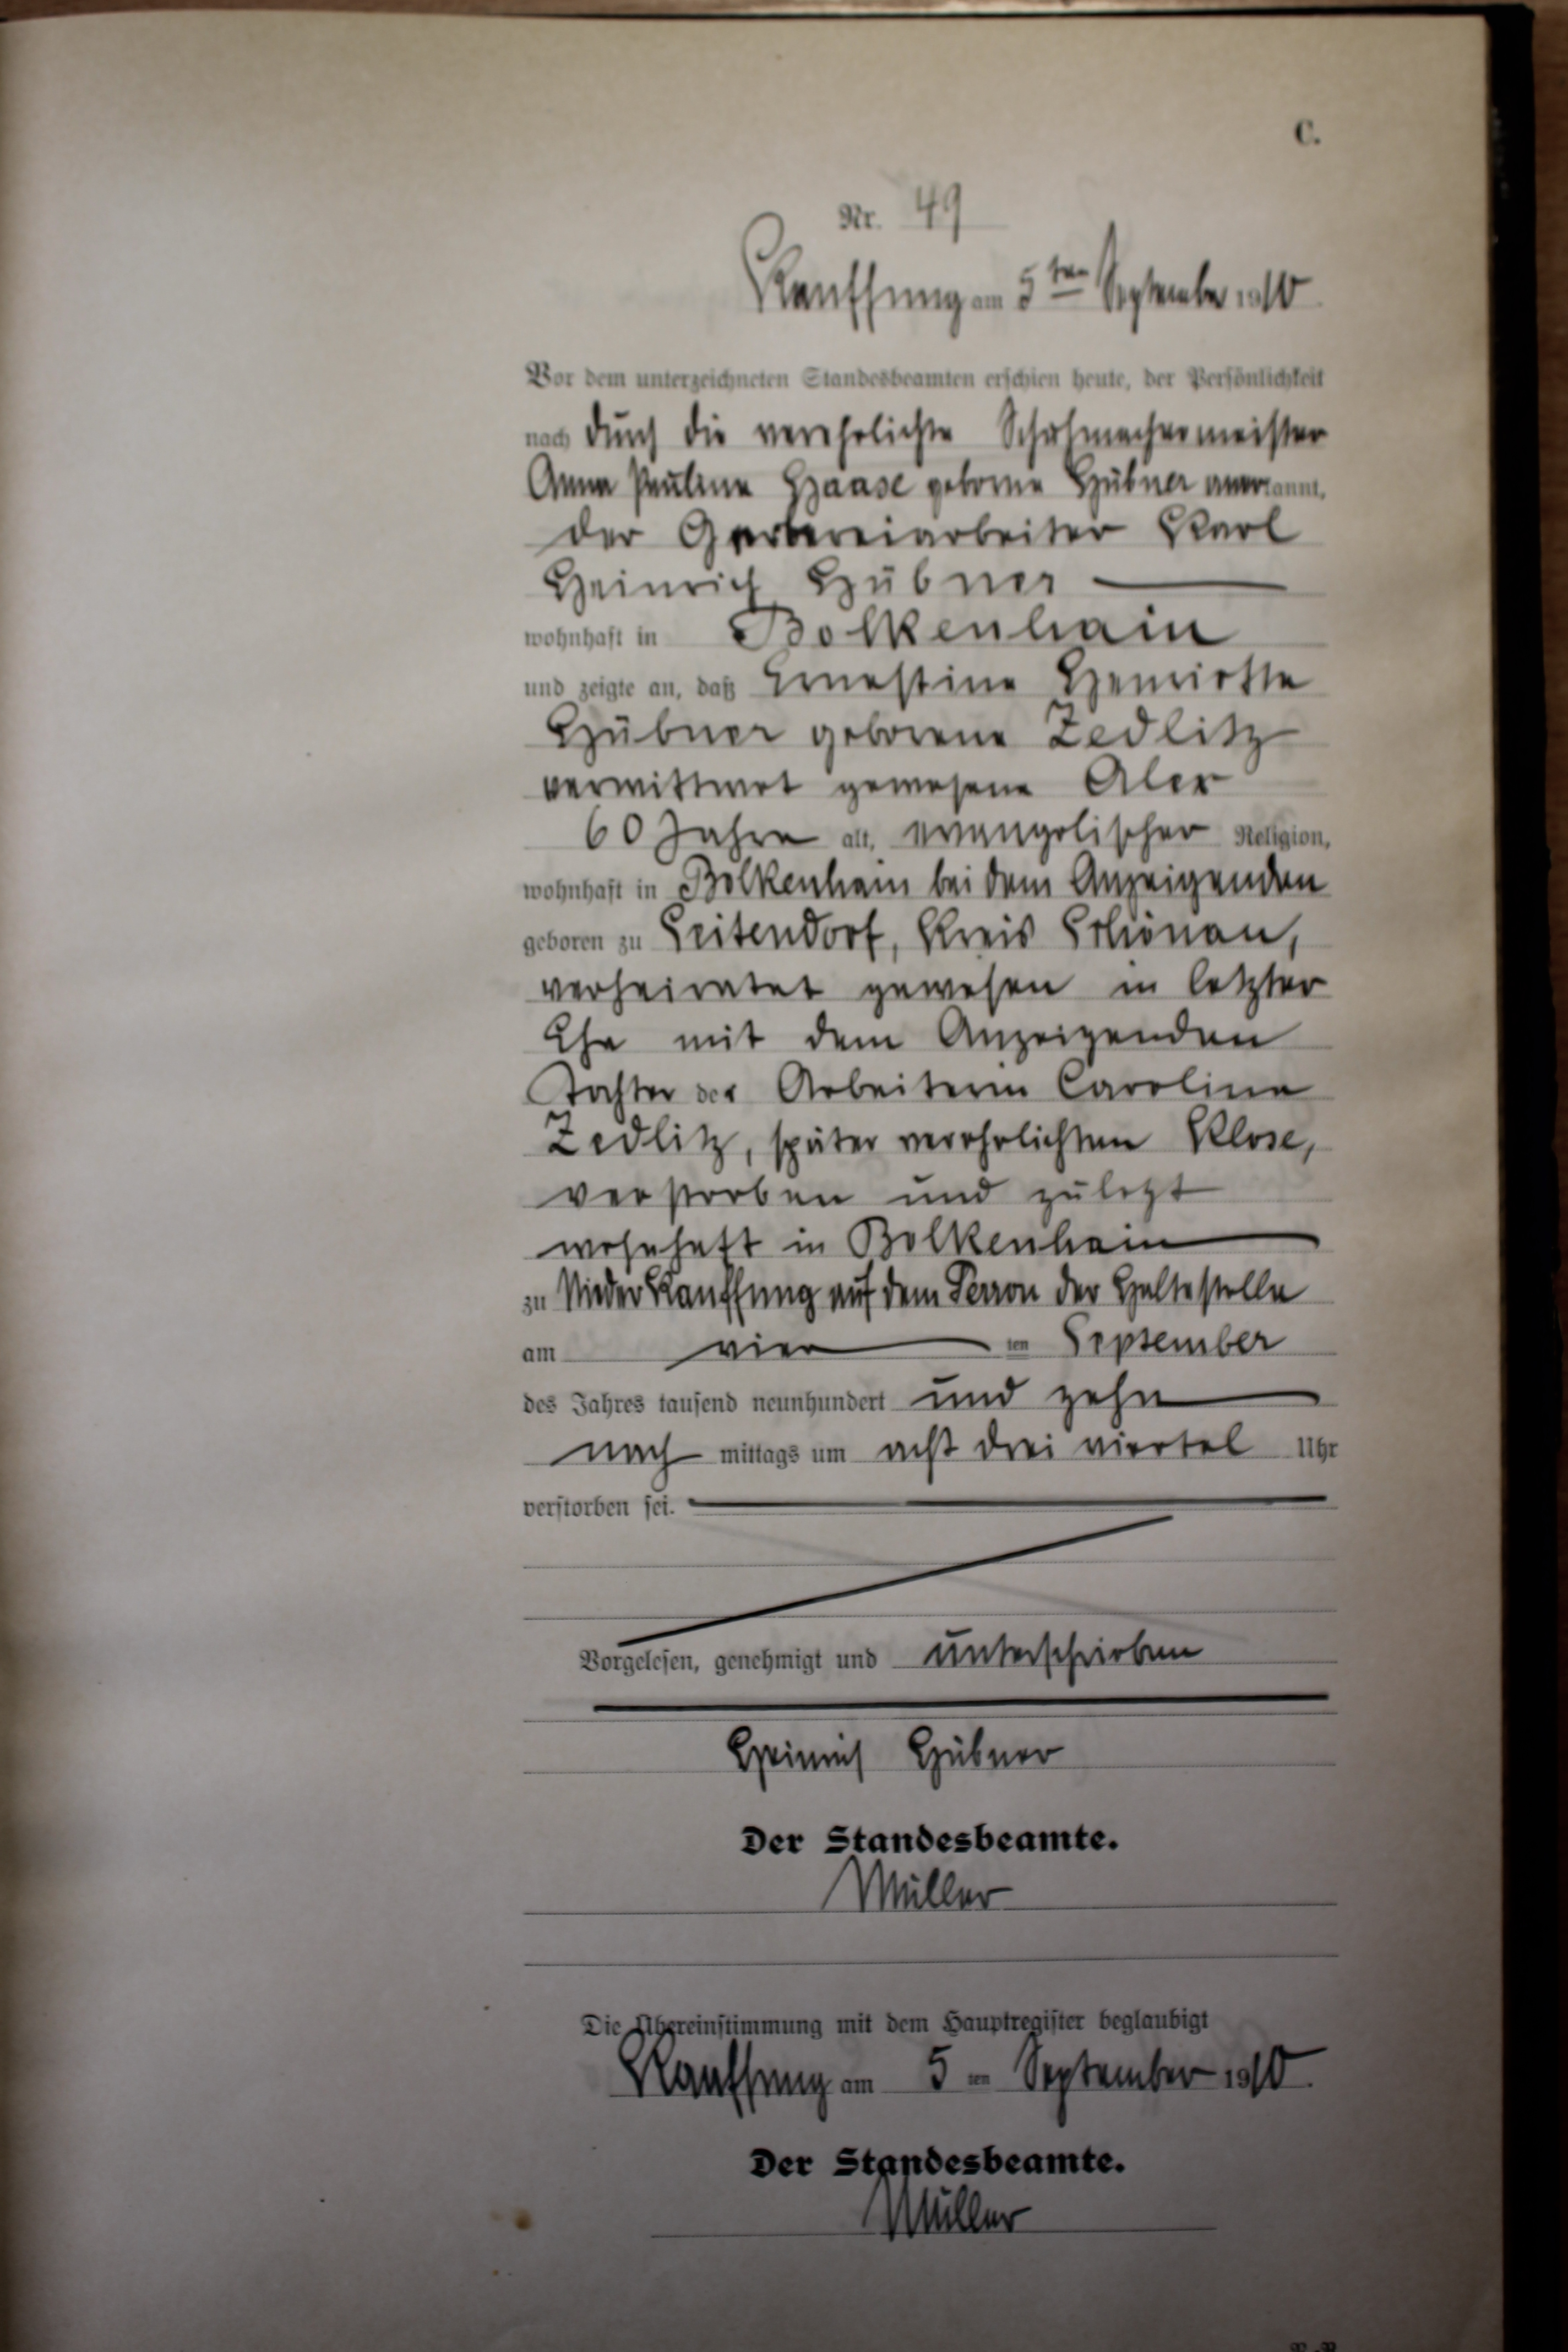 C.
Nr. 49
Kauffung am 5ten September 1910
Vor dem unterzeichneten Standesbeamten erschien heute, der Persönlichkeit
nach durch die verehelichte Schuhmachermeister
Anna Pauline Haase geborne Hübner anerkannt,
der Gerbereiarbeiter Karl
Heinrich Hübner
wohnhaft in Bolkenhain
und zeigte an, daß Ernestine Henriette
Hübner geborene Zedlitz
verwittwet gewesene
60 Jahre alt, evangelischer Religion,
wohnhaft in Bolkenhain bei dem Anzeigenden
geboren zu Seitendorf, Kreis Schönau,
verheiratet gewesen in letzter
Ehe mit dem Anzeigenden
Tochter der Arbeiterin Caroline
Zedlitz, später verehelichten Klose,
verstorben und zuletzt
wohnhaft in Bolkenhain
zu Nieder Kauffung auf dem Perron der Haltestelle
am vier ten September
des Jahres tausend neunhundert und zehn
nach mittags um acht drei viertel Uhr
verstorben sei.
Vorgelesen, genehmigt und unterschrieben
Heinrich Hübner
Der Standesbeamte.
Müller
Die Übereinstimmung mit dem Hauptregister beglaubigt
Kauffung am 5 ten September 1910.
Der Standesbeamte.
Müller